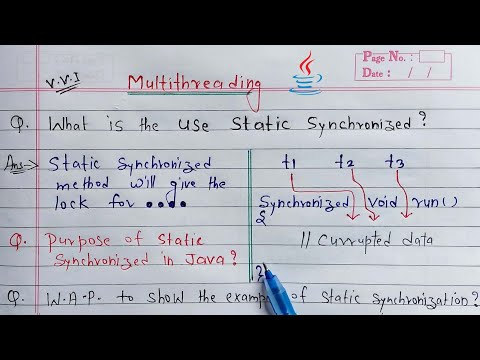 Page No. :
Date : / /
V.V.I
Multithreading
Q. What is the use Static Synchronized?
Ans:-> Static Synchronized
method will give the
lock for ....
t1 t2 t3
Synchronized void run()
{
// Currupted data
}
Q. Purpose of Static
Synchronized in Java?
Q. W.A.P. to show the example of Static Synchronization?